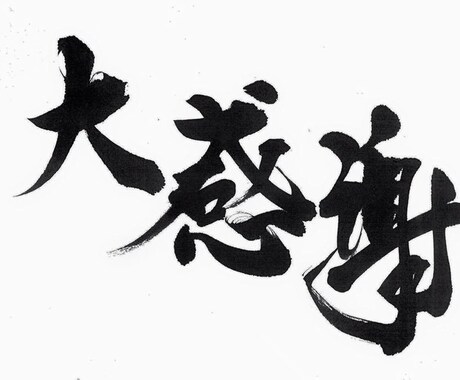 大感謝